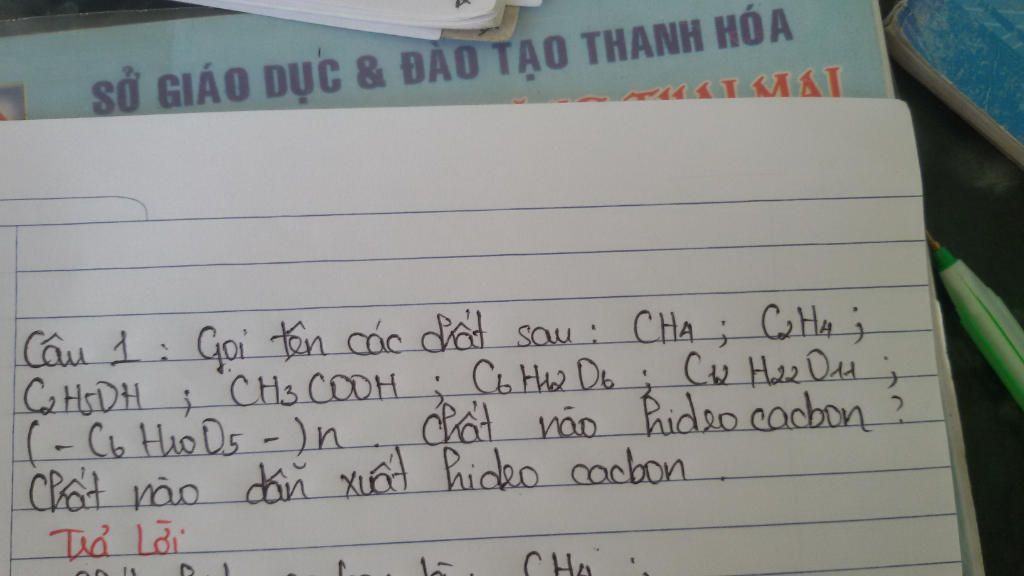 SỞ GIÁO DỤC & ĐÀO TẠO THANH HÓA
THAI MAI
Câu 1 : Gọi tên các chất sau : CH4 ; C2H4 ;
C2H5OH ; CH3COOH ; C6H12O6 ; C12H22O11 ;
(-C6H10O5-)n . Chất nào hideo cacbon ?
Chất nào dẫn xuất hideo cacbon .
Trả lời
CH4 ;